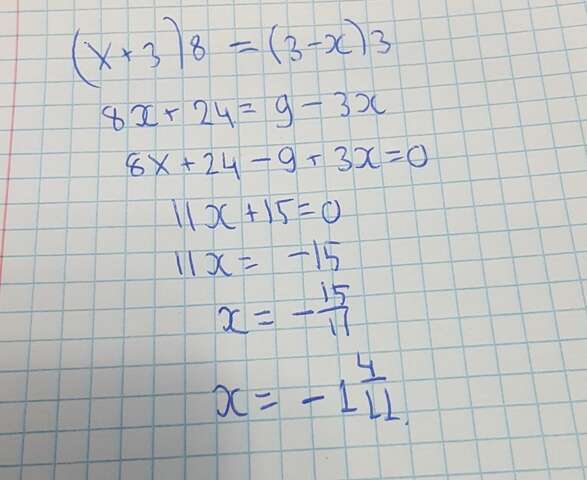 (x+3)8 = (3-x)3
8x+24=9-3x
8x+24-9+3x=0
11x+15=0
11x= -15
x= -15/11
x= -1 4/11.